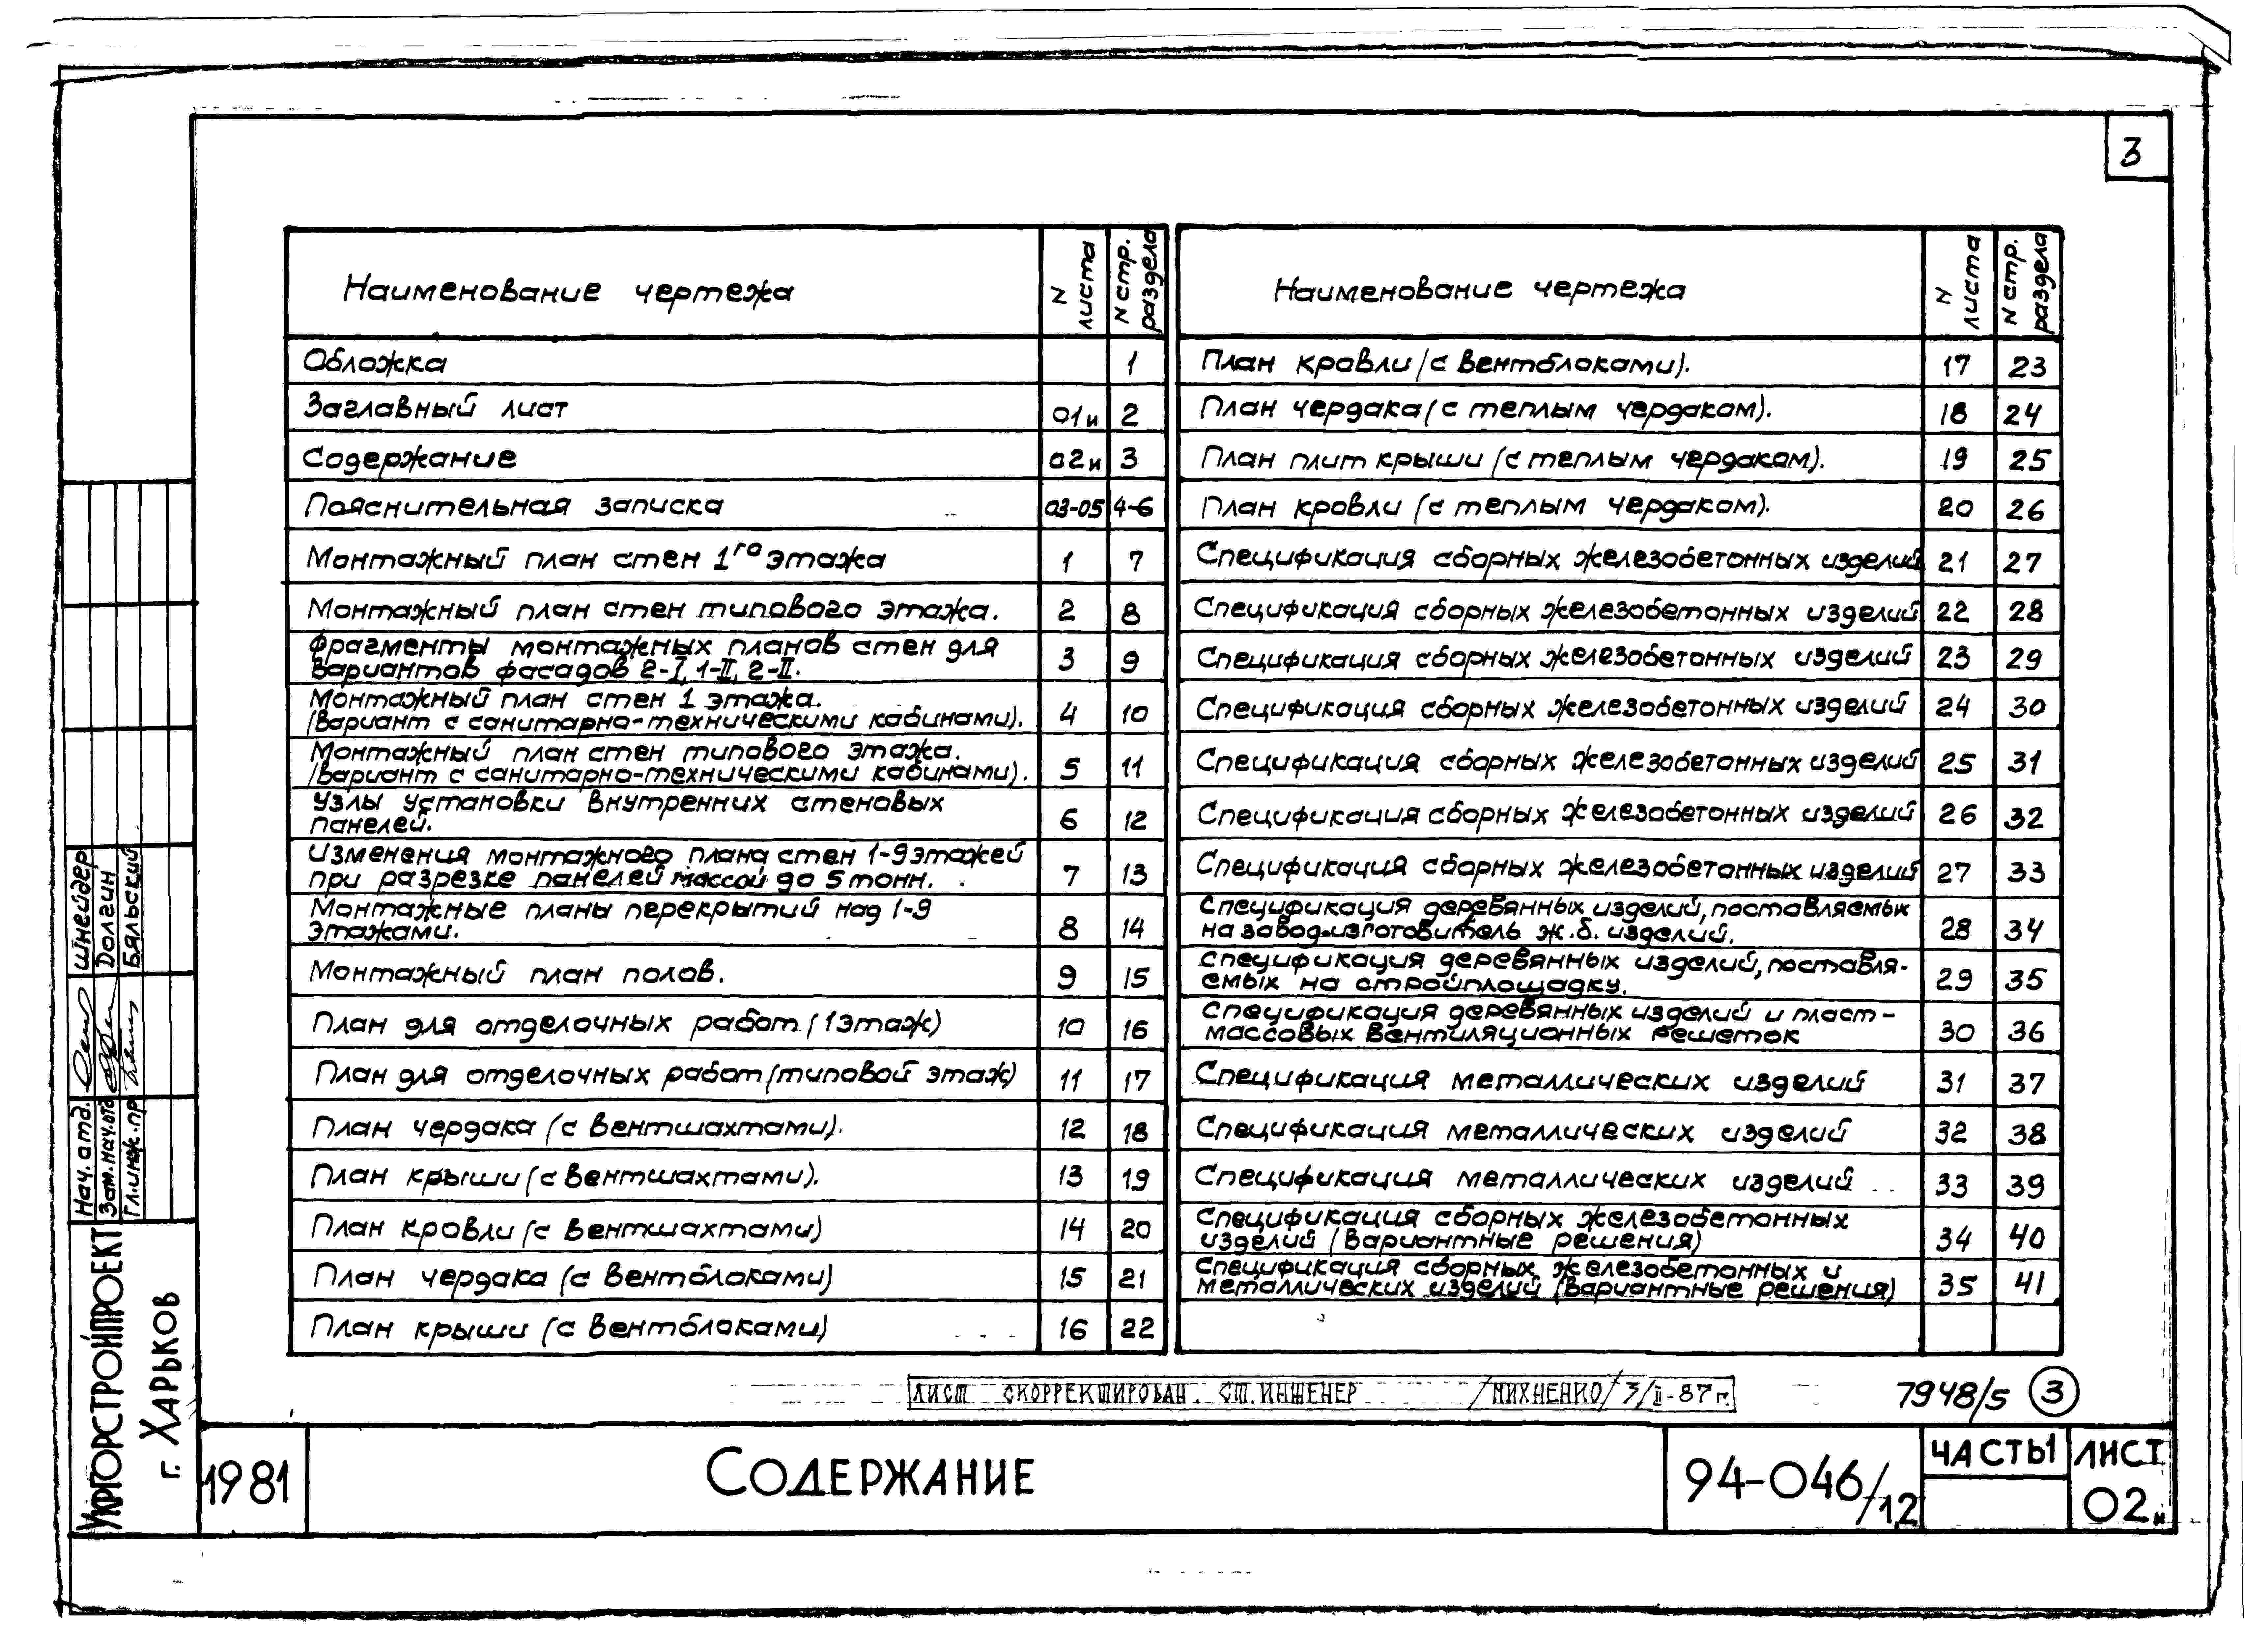 3
Наименование чертежа
N листа
N стр. раздела
Обложка 1
Заглавный лист 01и 2
Содержание 02и 3
Пояснительная записка 03-05 4-6
Монтажный план стен 1го этажа 1 7
Монтажный план стен типового этажа. 2 8
Фрагменты монтажных планов стен для
вариантов фасадов 2-I, 1-II, 2-II. 3 9
Монтажный план стен 1 этажа.
(вариант с санитарно-техническими кабинами). 4 10
Монтажный план стен типового этажа.
(вариант с санитарно-техническими кабинами). 5 11
Узлы установки внутренних стеновых
панелей. 6 12
Изменения монтажного плана стен 1-9 этажей
при разрезке панелей массой до 5 тонн. 7 13
Монтажные планы перекрытий над 1-9
этажами. 8 14
Монтажный план полов. 9 15
План для отделочных работ (1 этаж) 10 16
План для отделочных работ (типовой этаж) 11 17
План чердака (с вентшахтами). 12 18
План крыши (с вентшахтами). 13 19
План кровли (с вентшахтами) 14 20
План чердака (с вентблоками) 15 21
План крыши (с вентблоками) 16 22
Наименование чертежа
N листа
N стр. раздела
План кровли (с вентблоками). 17 23
План чердака (с теплым чердаком). 18 24
План плит крыши (с теплым чердаком). 19 25
План кровли (с теплым чердаком). 20 26
Спецификация сборных железобетонных изделий 21 27
Спецификация сборных железобетонных изделий 22 28
Спецификация сборных железобетонных изделий 23 29
Спецификация сборных железобетонных изделий 24 30
Спецификация сборных железобетонных изделий 25 31
Спецификация сборных железобетонных изделий 26 32
Спецификация сборных железобетонных изделий 27 33
Спецификация деревянных изделий, поставляемых
на завод-изготовитель ж.б. изделий. 28 34
Спецификация деревянных изделий, поставля-
емых на стройплощадку. 29 35
Спецификация деревянных изделий и пласт-
массовых вентиляционных решеток 30 36
Спецификация металлических изделий 31 37
Спецификация металлических изделий 32 38
Спецификация металлических изделий 33 39
Спецификация сборных железобетонных
изделий (вариантные решения) 34 40
Спецификация сборных железобетонных и
металлических изделий (вариантные решения) 35 41
Лист скорректирован. Ст. инженер /Михненко/ 3/II-87 г.
7948/5 3
Нач. отд. Шнейдер
Зам. нач. отд Долгин
Гл. инж. пр Бяльский
Укргорстройпроект
г. Харьков
1981
Содержание
94-046/1.2
Часть 1
Лист
02и